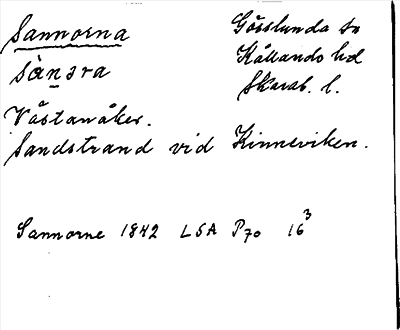 Sannorna
Gösslunda sn
sànɘra
Kållands hd
Skarab. l.
Västanåker.
Sandstrand vid Kinneviken.
Sannorne 1842 LSA P70 16³